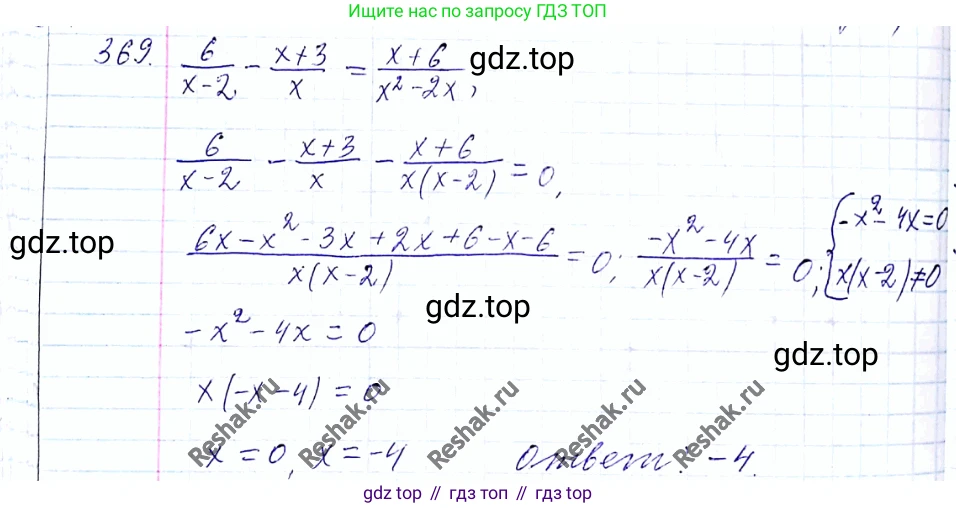 Ищите нас по запросу GDZ ТОП
369. 6/(x-2) - (x+3)/x = (x+6)/(x²-2x), gdz.top
6/(x-2) - (x+3)/x - (x+6)/(x(x-2)) = 0,
gdz.top (6x-x²-3x+2x+6-x-6)/(x(x-2)) = 0; (-x²-4x)/(x(x-2)) = 0; { -x²-4x=0 x(x-2)≠0
-x²-4x=0 gdz.top
gdz.top
x(-x-4)=0
Reshak.ru Reshak.ru Reshak.ru Reshak.ru Reshak.ru
x=0, x=-4 ответ: -4.
gdz top // гдз топ // gdz top